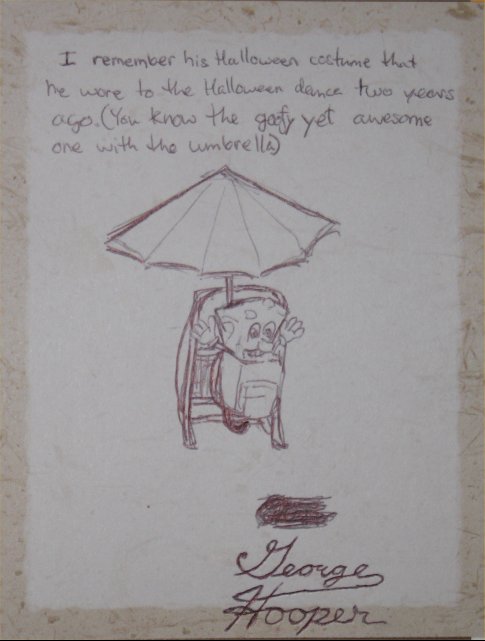 I remember his Halloween costume that
he wore to the Halloween dance two years
ago. (You know the goofy yet awesome
one with the umbrella)
George
Hooper